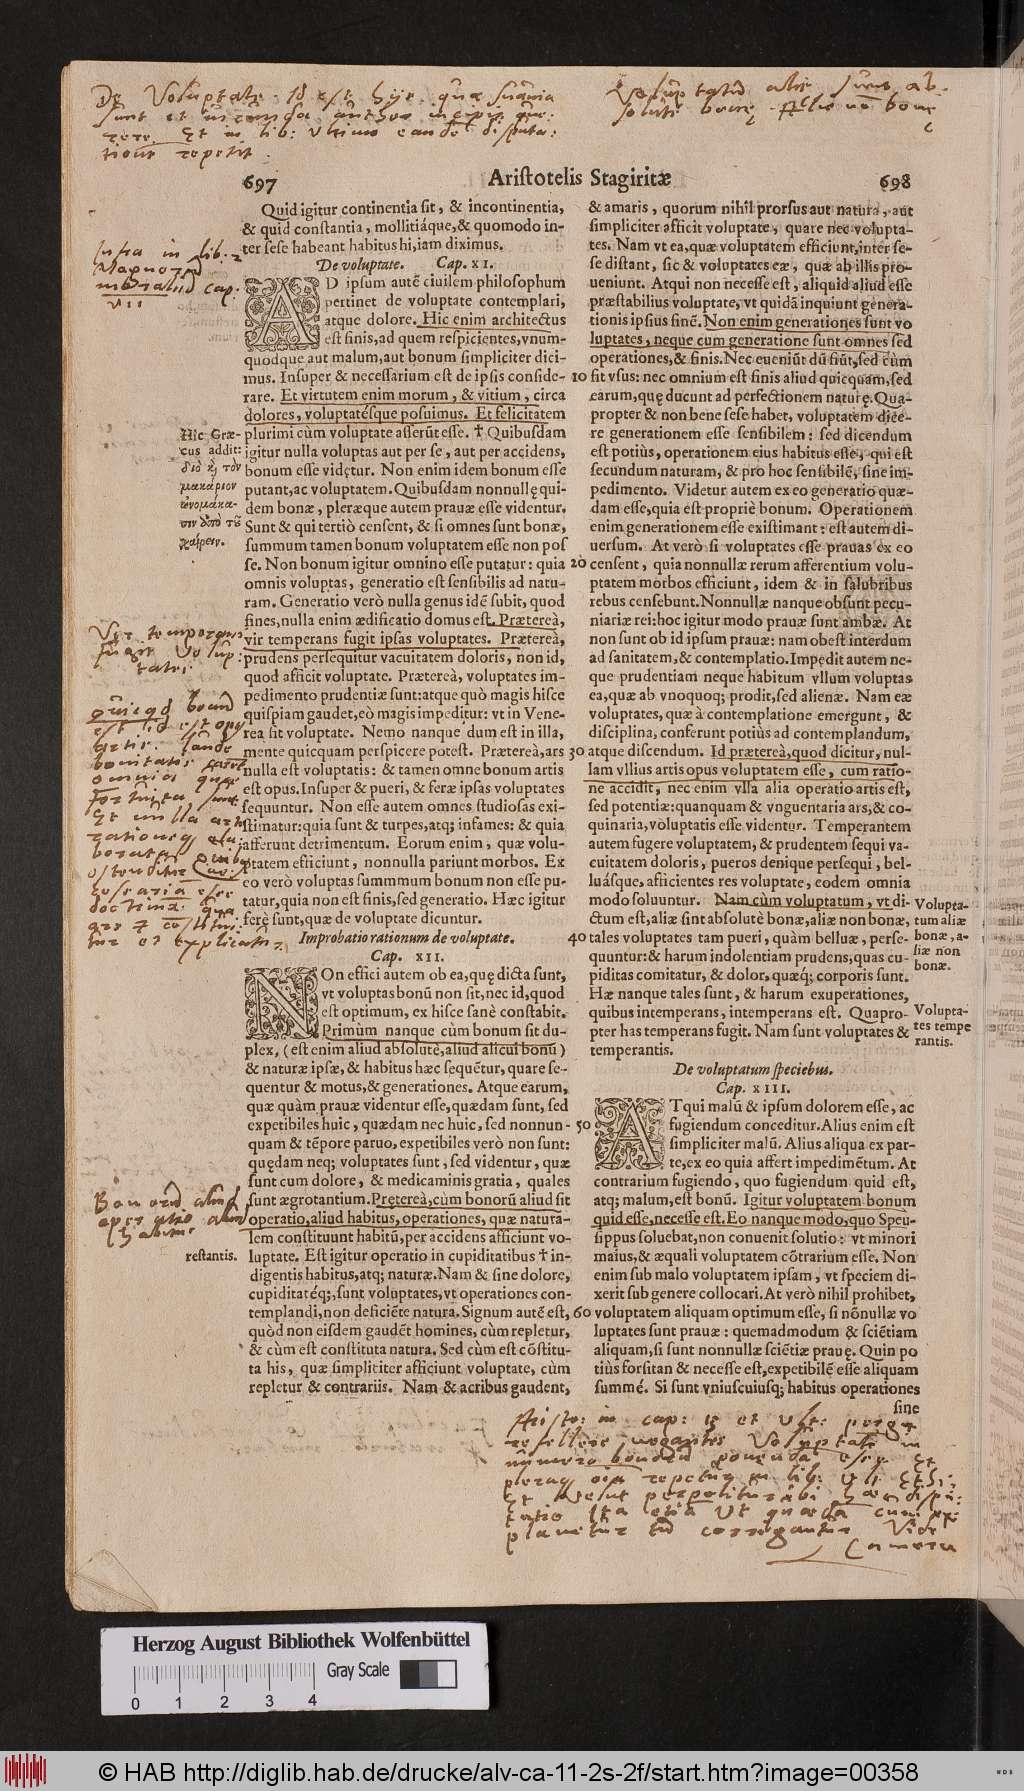 De Voluptate. Id est hijs quæ suavia
sunt et
rere. Et in lib: ultimo eandē disputa-
tionē repetit.
Voluptatū aliæ sunt ab-
solute bonę. Aliæ nō bonę
697
Aristotelis Stagiritæ
698
Quid igitur continentia sit, & incontinentia,
& quid constantia, mollitiáque, & quomodo in-
ter sese habeant habitus hi, iam diximus.
De voluptate. Cap. XI.
AD ipsum autē ciuilem philosophum
pertinet de voluptate contemplari,
atque dolore. Hic enim architectus
est finis, ad quem respicientes, vnum-
quodque aut malum, aut bonum simpliciter dici-
mus. Insuper & necessarium est de ipsis conside-
rare. Et virtutem enim morum, & vitium, circa
dolores, voluptatésque posuimus. Et felicitatem
plurimi cùm voluptate asserūt esse. † Quibusdam
igitur nulla voluptas aut per se, aut per accidens,
bonum esse vidętur. Non enim idem bonum esse
putant, ac voluptatem. Quibusdam nonnullę qui-
dem bonæ, pleræque autem prauæ esse videntur.
Sunt & qui tertiò censent, & si omnes sunt bonæ,
summum tamen bonum voluptatem esse non pos
se. Non bonum igitur omnino esse putatur: quia
omnis voluptas, generatio est sensibilis ad natu-
ram. Generatio verò nulla genus idē subit, quod
fines, nulla enim ædificatio domus est. Prætereà,
vir temperans fugit ipsas voluptates. Prætereà,
prudens persequitur vacuitatem doloris, non id,
quod afficit voluptate. Prætereà, voluptates im-
pedimento prudentiæ sunt: atque quò magis hisce
quispiam gaudet, eò magis impeditur: vt in Vene-
rea sit voluptate. Nemo nanque dum est in illa,
mente quicquam perspicere potest. Prætereà, ars
nulla est voluptatis: & tamen omne bonum artis
est opus. Insuper & pueri, & feræ ipsas voluptates
sequuntur. Non esse autem omnes studiosas exi-
stimatur: quia sunt & turpes, atq; infames: & quia
afferunt detrimentum. Eorum enim, quæ volu-
ptatem efficiunt, nonnulla pariunt morbos. Ex
eo verò voluptas summmum bonum non esse pu-
tatur, quia non est finis, sed generatio. Hæc igitur
ferè sunt, quæ de voluptate dicuntur.
Improbatio rationum de voluptate.
Cap. XII.
NOn effici autem ob ea, quę dicta sunt,
vt voluptas bonū non sit, nec id, quod
est optimum, ex hisce sanè constabit.
Primùm nanque cùm bonum sit du-
plex, (est enim aliud absolutè, aliud alicui bonū)
& naturæ ipsæ, & habitus hæc sequētur, quare se-
quentur & motus, & generationes. Atque earum,
quæ quàm prauæ videntur esse, quædam sunt, sed
expetibiles huic, quædam nec huic, sed nonnun-
quam & tēpore paruo, expetibiles verò non sunt:
quędam neq; voluptates sunt, sed videntur, quæ
sunt cum dolore, & medicaminis gratia, quales
sunt ægrotantium. Prętereà, cùm bonorū aliud sit
operatio, aliud habitus, operationes, quæ natura-
lem constituunt habitū, per accidens afficiunt vo-
luptate. Est igitur operatio in cupiditatibus † in-
digentis habitus, atq; naturæ. Nam & sine dolore,
cupiditatéq;, sunt voluptates, vt operationes con-
templandi, non deficiēte natura. Signum autē est,
quòd non eisdem gaudēt homines, cùm repletur,
& cùm est constituta natura. Sed cùm est cōstitu-
ta his, quæ simpliciter afficiunt voluptate, cùm
repletur & contrariis. Nam & acribus gaudent,
Infra in lib. 2
Magnorū
moraliū cap.
VII
Hic Græ-
cus addit:
διὸ ϗ τὸν
μακάριον
ὠνομάκα-
σιν ἀπὸ τοῦ
χαίρειν.
Vir temperans
fugit volup-
tates
quicqd bonū
est id est opus
artis.
Bonorū aliud
operatio aliud
habitus
restantis.
& amaris, quorum nihil prorsus aut natura, aut
simpliciter afficit voluptate, quare nec volupta-
tes. Nam vt ea, quæ voluptatem efficiunt, inter se-
se distant, sic & voluptates eæ, quæ ab illis pro-
ueniunt. Atqui non necesse est, aliquid aliud esse
præstabilius voluptate, vt quidā inquiunt genera-
tionis ipsius finē. Non enim generationes sunt vo
luptates, neque cum generatione sunt omnes sed
operationes, & finis. Nec eueniūt dū fiūt, sed cùm
10 fit vsus: nec omnium est finis aliud quicquam, sed
earum, quę ducunt ad perfectionem naturę. Qua-
propter & non bene sese habet, voluptatem dice-
re generationem esse sensibilem: sed dicendum
est potiùs, operationem eius habitus esse, qui est
secundum naturam, & pro hoc sensibilē, sine im-
pedimento. Videtur autem ex eo generatio quæ-
dam esse, quia est propriè bonum. Operationem
enim generationem esse existimant: est autem di-
uersum. At verò si voluptates esse prauas ex eo
20 censent, quia nonnullæ rerum afferentium volu-
ptatem morbos efficiunt, idem & in salubribus
rebus censebunt. Nonnullæ nanque obsunt pecu-
niariæ rei: hoc igitur modo prauæ sunt ambæ. At
non sunt ob id ipsum prauæ: nam obest interdum
ad sanitatem, & contemplatio. Impedit autem ne-
que prudentiam neque habitum vllum voluptas
ea, quæ ab vnoquoq; prodit, sed alienæ. Nam eæ
voluptates, quæ à contemplatione emergunt, &
disciplina, conferunt potiùs ad contemplandum,
30 atque discendum. Id prætereà, quod dicitur, nul-
lam vllius artis opus voluptatem esse, cum ratio-
ne accidit, nec enim vlla alia operatio artis est,
sed potentiæ: quanquam & vnguentaria ars, & co-
quinaria, voluptatis esse videntur. Temperantem
autem fugere voluptatem, & prudentem sequi va-
cuitatem doloris, pueros denique persequi, bel-
luásque, afficientes res voluptate, eodem omnia
modo soluuntur. Nam cùm voluptatum, vt di-
ctum est, aliæ sint absolutè bonæ, aliæ non bonæ,
40 tales voluptates tam pueri, quàm belluæ, perse-
quuntur: & harum indolentiam prudens, quas cu-
piditas comitatur, & dolor, quæq́; corporis sunt.
Hæ nanque tales sunt, & harum exuperationes,
quibus intemperans, intemperans est. Quapro-
pter has temperans fugit. Nam sunt voluptates &
temperantis.
De voluptatum speciebus.
Cap. XIII.
ATqui malū & ipsum dolorem esse, ac
50 fugiendum conceditur. Alius enim est
simpliciter malū. Alius aliqua ex par-
te, ex eo quia affert impedimētum. At
contrarium fugiendo, quo fugiendum quid est,
atq; malum, est bonū. Igitur voluptatem bonum
quid esse, necesse est. Eo nanque modo, quo Speu-
sippus soluebat, non conuenit solutio: vt minori
maius, & æquali voluptatem cōtrarium esse. Non
enim sub malo voluptatem ipsam, vt speciem di-
xerit sub genere collocari. At verò nihil prohibet,
60 voluptatem aliquam optimum esse, si nōnullæ vo
luptates sunt prauæ: quemadmodum & sciētiam
aliquam, si sunt nonnullæ sciētiæ prauę. Quin po
tiùs forsitan & necesse est, expetibilē esse aliquam
summé. Si sunt vniuscuiusq; habitus operationes
sine
Volupta-
tum aliæ
bonæ, a-
liæ non
bonæ.
Volupta-
tes tempe
rantis.
Aristo: in cap: 13 et ult: pergit
refellere negantes Voluptatē in
numero bonorū ponendā esse. Et
Herzog August Bibliothek Wolfenbüttel
Gray Scale
0 1 2 3 4
© HAB http://diglib.hab.de/drucke/alv-ca-11-2s-2f/start.htm?image=00358